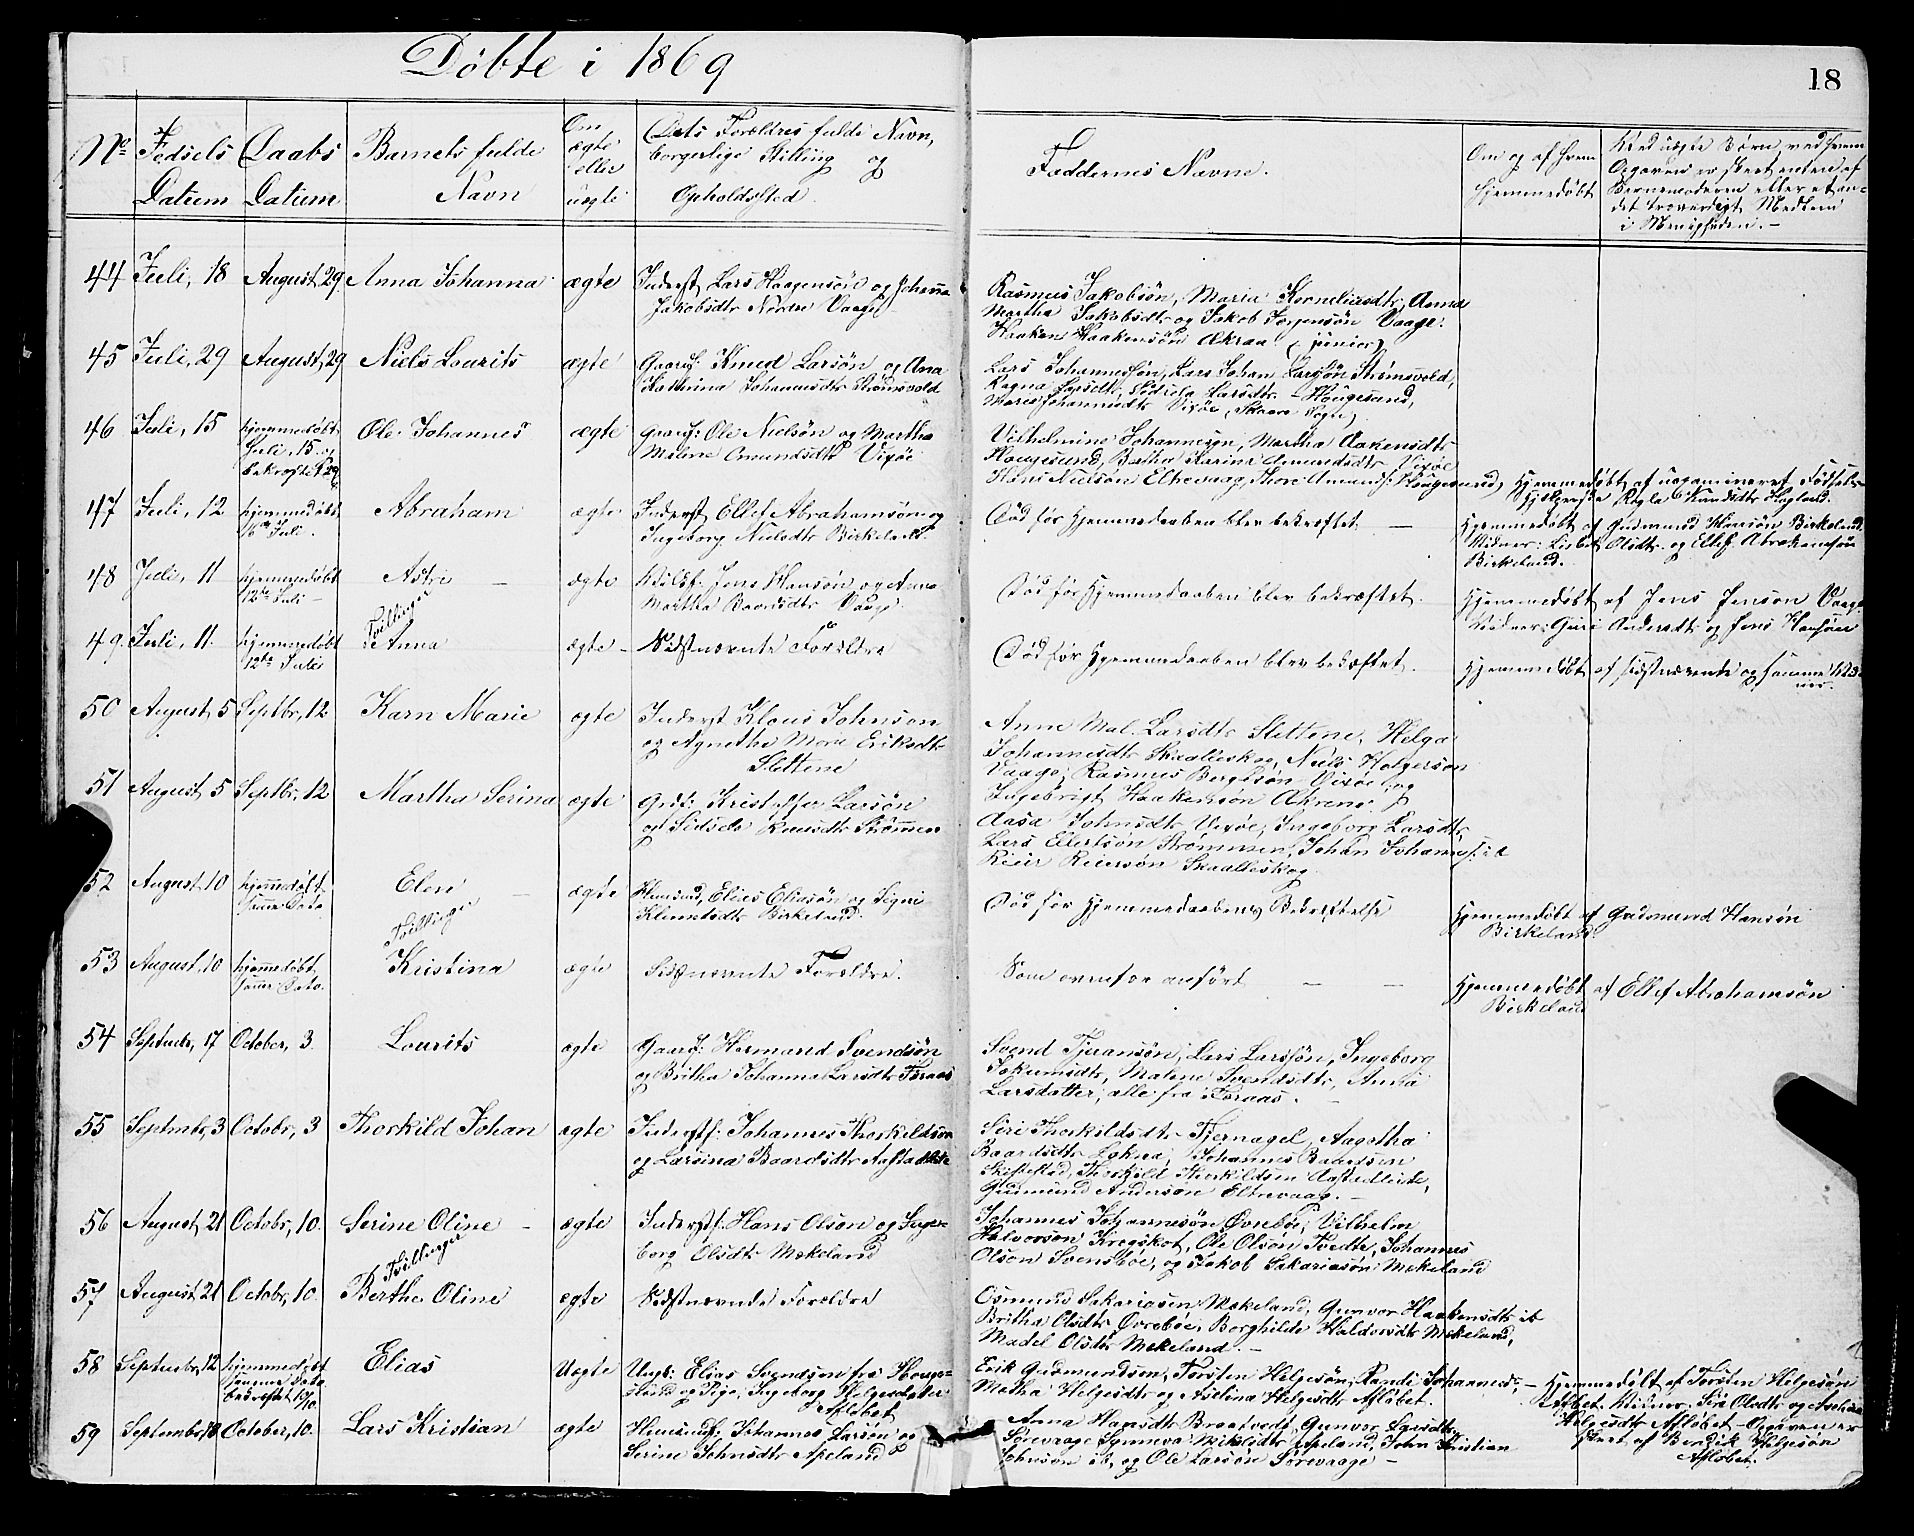 Döbte i 1869
18
No
Fødsels Datum
Daabs Datum
Barnets fulde Navn
Om ægte eller uægte
Dets Forældres fulde Navn, borgerlige Stilling og Opholdssted.
Faddernes Navne.
Om og af hvem hjemmedøbt
Ved uægte Børn, ved hvem
Opgaven er skeet enten af
Barnemoderen eller et an-
det troværdigt Medlem
i Menigheden. -
44 Juli, 18 August, 29 Anna Johanna ægte Inderst Lars Haagensön og Johanna
Jakobsdtr Nordre Vaage
Rasmus Jakobsön, Maria Korneliusdtr, Anna
Martha Jakobsdtr og Jakob Jørgensön Vaage.
Haaken Haakensön Aakraa (junior)
45 Juli, 29 August, 29 Niels Lourits ægte Gaardf: Knud Larsön og Ana
Katherina Johannesdtr Strømsvold
Lars Johannesön, Lars Johan Larsön Strømsvold,
Ragna Larsdtr, Sidsela Larsdtr - Hougesund,
Maria Johannesdtr Vixøe, Skaare Sogn,
46 Juli, 15 hjemmedøbt Juli, 15. og bekræftet 29 Ole Johannes ægte Gaardf: Ole Nielsön og Martha
Malene Amundsdtr Vixöe
Vilhelmine Johannesön, Martha Aakensdtr
Hougesund, Bertha Karina Amundsdtr Vixöe
Hans Nielsön Eltrevaag, Thore Amundsf: Hougesund,
Hjemmedøbt af uexamineret Fødsels-
hjelperske Ragla Knudsdtr Hogland.
47 Juli, 12 hjemmedøbt 16de Juli. Abraham ægte Inderst Ellef Abrahamsön og
Ingeborg Nielsdtr Birkeland.
Död før Hjemmedaaben blev bekræftet. -
Hjemmedøbt af Gudmund Hansön Birkeland.
Vidner: Lisbet Olsdtr. og Ellef Abrahamsön
Birkeland.
48 Juli, 11 hjemmedøbt 12te Juli - Astri - ægte Jens Hansön og Anna
Martha Vaage.
Död før Hjemmedaaben blev bekræftet.
Hjemmedøbt af Jens Jenson Vaage.
Vidner: Guri Andersdtr og Jens Hansöen
Tvillinger
49. Juli, 11. hjemmedøbt 12te Julii Anna ægte - Sidstnævnte Forældre
Död før Hjemmedaaben blev bekræftet.
Hjemmedøbt af sidstnævnte og samme Vid-
ner.
50 August, 5 Septbr, 12 Karn Marie ægte Inderst Klaus Johnson
og Agnethe Marie Eriksdtr
Slettene
Anne Mal. Larsdtr Slettene, Helga
Johannesdtr Skaalleskog, Niels Holgerson
Vaage; Rasmus Vixöe, og
Ingebrigt Haakensön Ækrene
51 August, 5 Septbr, 12 Martha Serina ægte Grdf: Kristoffer Larsön
og Sidsela Strømmen
Aasa Johnsdtr Vixøe, Ingeborg Larsdtr,
Lars Ellertsön Strømmen, Johan
Reier Reiersön Skaalleskog
52 August, 10 hjemmedøbt samme Dato Elen - ægte Huusmd, Elias Eliasön og Signi
Klemetsdtr Birkeland.
Död før Hjemmedaabens Bekræftelse
Hjemmedøbt af Gudmund Hansön
Birkeland.
Tvillinger
53 August, 10 hjemmedøbt, samme Dato. Kristina ægte Sidstnævnte Forældre.
Som ovenfor anført - -
Hjemmedøbt af Ellef Abrahamsön
Birkeland
54 Septmbr, 17 October, 3 Lourits ægte Gaardf: Hermand Svendsön
og Britha Johanna Larsdtr Foraas
Svend Tjeransön, Lars Larssön, Ingeborg
Malene Svendsdtr, Anna
Larsdatter, alle fra Foraas. -
55 Septmbr, 3 Octobr, 3 Thorkild Johan ægte Inderstf: Johannes Thorkildsön
og Larsina Baardsdtr
Siri Thorkildsdtr Tjernagel, Aagatha
Baardsdtr Lokna, Johannes Baardsen
Thorkild Thorkildsen
Gudmund Anderson Eltrevaag. -
56 August, 21 Octobr, 10. Serine Oline - ægte Inderstf: Hans Olson og Inge-
borg Olsdtr Mækeland
Johannes Johannesön Övreböe, Vilhelm
Halvorsön Kregskot, Ole Olsön Tvedte, Johannes
Olson Svensböe, og Jakob Sakariasön Mækeland
Tvillinger
57 August, 21 Octobr, 10. Berthe Oline ægte Sidstnævnte Forældre
Osmund Sakariasen Mækeland, Gunvor Haakensdtr ib
Britha Olsdtr Övreböe, Borghilde Haldorsdtr Mækeland,
Madel Olsdtr Mækeland. -
58 Septmbr, 12 hjemmedøbt samme Dato bekræftet 10/10 Elias Uægte Ungk: Elias Svendsen fra Houge-
sund og Pige, Ingeborg Helgesdatter
Afløbet
Erik Gudmundson, Torsten Helgesön, Randi Johannesd:,
Matha Helgesdtr og Aselina Helgesdtr Afløbet. -
Hjemmedøbt af Torsten Helgesön
Afløbet. Vidner: Siri Olsdtr og
Helgesdtr Afløbet - Opgaven er
skeet af Bendik Helgesön
Afløbet.
59 Septembr, 18 October, 10. Lars Kristian ægte Huusmdf: Johannes Larsön og
Serine Johnsdtr Apeland
Anna Hansdtr Braatvedt, Gunvor Larsdtr
Sørevaage Synneva Mikelsdtr Apeland, John Kristian
Johnsön ib, og Ole Larsön Sørevaage -